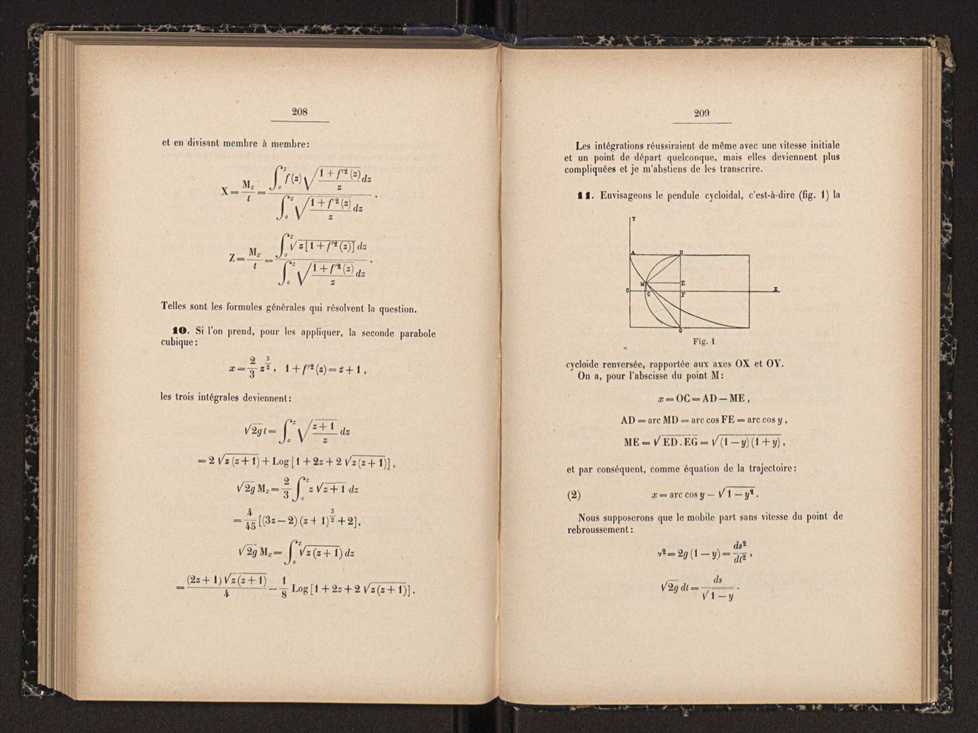 208
et en divisant membre à membre:
X = M_x / t = ∫_0^z f(z) √((1 + f'²(z)) / z) dz / ∫_0^z √((1 + f'²(z)) / z) dz .
Z = M_z / t = ∫_0^z √(z [1 + f'²(z)]) dz / ∫_0^z √((1 + f'²(z)) / z) dz .
Telles sont les formules générales qui résolvent la question.
10. Si l'on prend, pour les appliquer, la seconde parabole
cubique:
x = 2/3 z^(3/2) , 1 + f'²(z) = z + 1 ,
les trois intégrales deviennent:
√2g t = ∫_0^z √((z + 1) / z) dz
= 2 √(z (z + 1)) + Log [1 + 2z + 2 √(z (z + 1))] ,
√2g M_x = 2/3 ∫_0^z z √(z + 1) dz
= 4/45 [(3z − 2) (z + 1)^(3/2) + 2],
√2g M_z = ∫_0^z √(z (z + 1)) dz
= (2z + 1) √(z (z + 1)) / 4 − 1/8 Log [1 + 2z + 2 √(z (z + 1))] .
209
Les intégrations réussiraient de même avec une vitesse initiale
et un point de départ quelconque, mais elles deviennent plus
compliquées et je m'abstiens de les transcrire.
11. Envisageons le pendule cycloidal, c'est-à-dire (fig. 1) la
Y
A D
M E
O C F X
G
Fig. 1
cycloide renversée, rapportée aux axes OX et OY.
On a, pour l'abscisse du point M:
x = OC = AD − ME ,
AD = arc MD = arc cos FE = arc cos y ,
ME = √(ED . EG) = √((1 − y) (1 + y)) ,
et par conséquent, comme équation de la trajectoire:
(2) x = arc cos y − √(1 − y²) .
Nous supposerons que le mobile part sans vitesse du point de
rebroussement:
v² = 2g (1 − y) = ds² / dt² ,
√2g dt = ds / √(1 − y) .